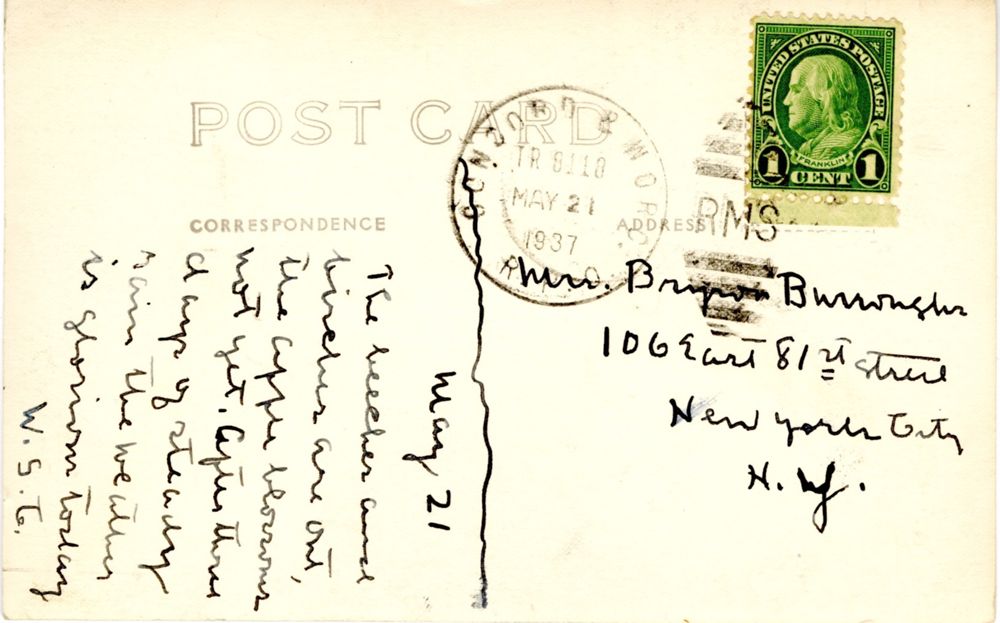 POST CARD
CORRESPONDENCE
ADDRESS
CONCORD & WORC.
TR 8110
MAY 21
1937
R.P.O.
RMS
UNITED STATES POSTAGE
FRANKLIN
1 CENT 1
May 21
The beeches and
birches are out,
the apple blossoms
not yet. After three
days of steady
rain the weather
is glorious today
W.S.G.
Mrs. Bryson Burroughs
106 East 81st Street
New York City
N.Y.